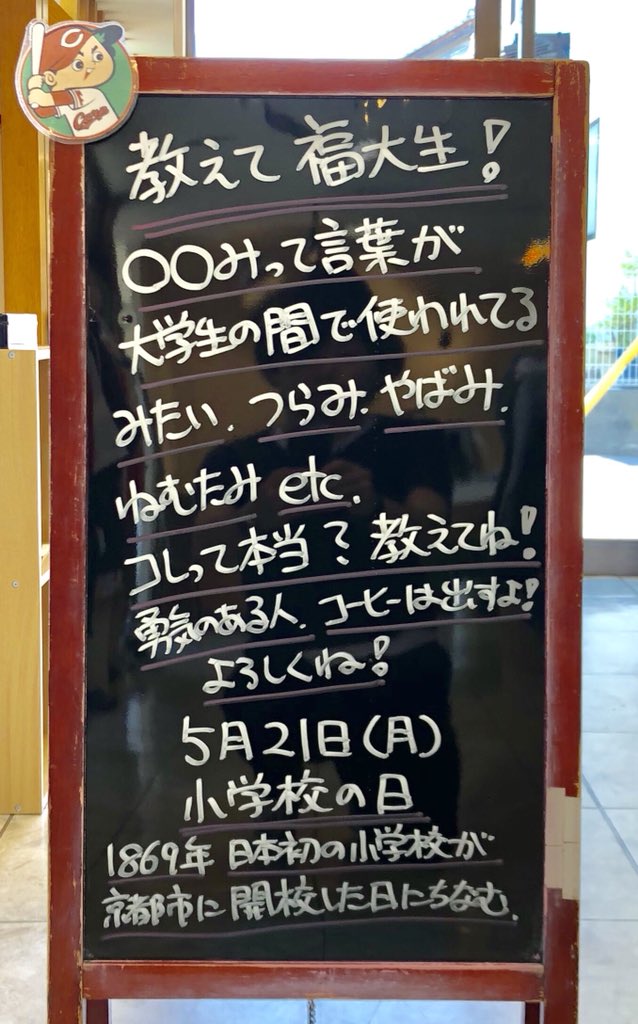 教えて 福大生!
〇〇みって言葉が
大学生の間で使われてる
みたい. つらみ. やばみ.
ねむたみ etc.
コレって本当? 教えてね!
勇気のある人. コーヒーは出すよ!
よろしくね!
5月21日(月)
小学校の日
1869年 日本初の小学校が
京都市に開校した日にちなむ.